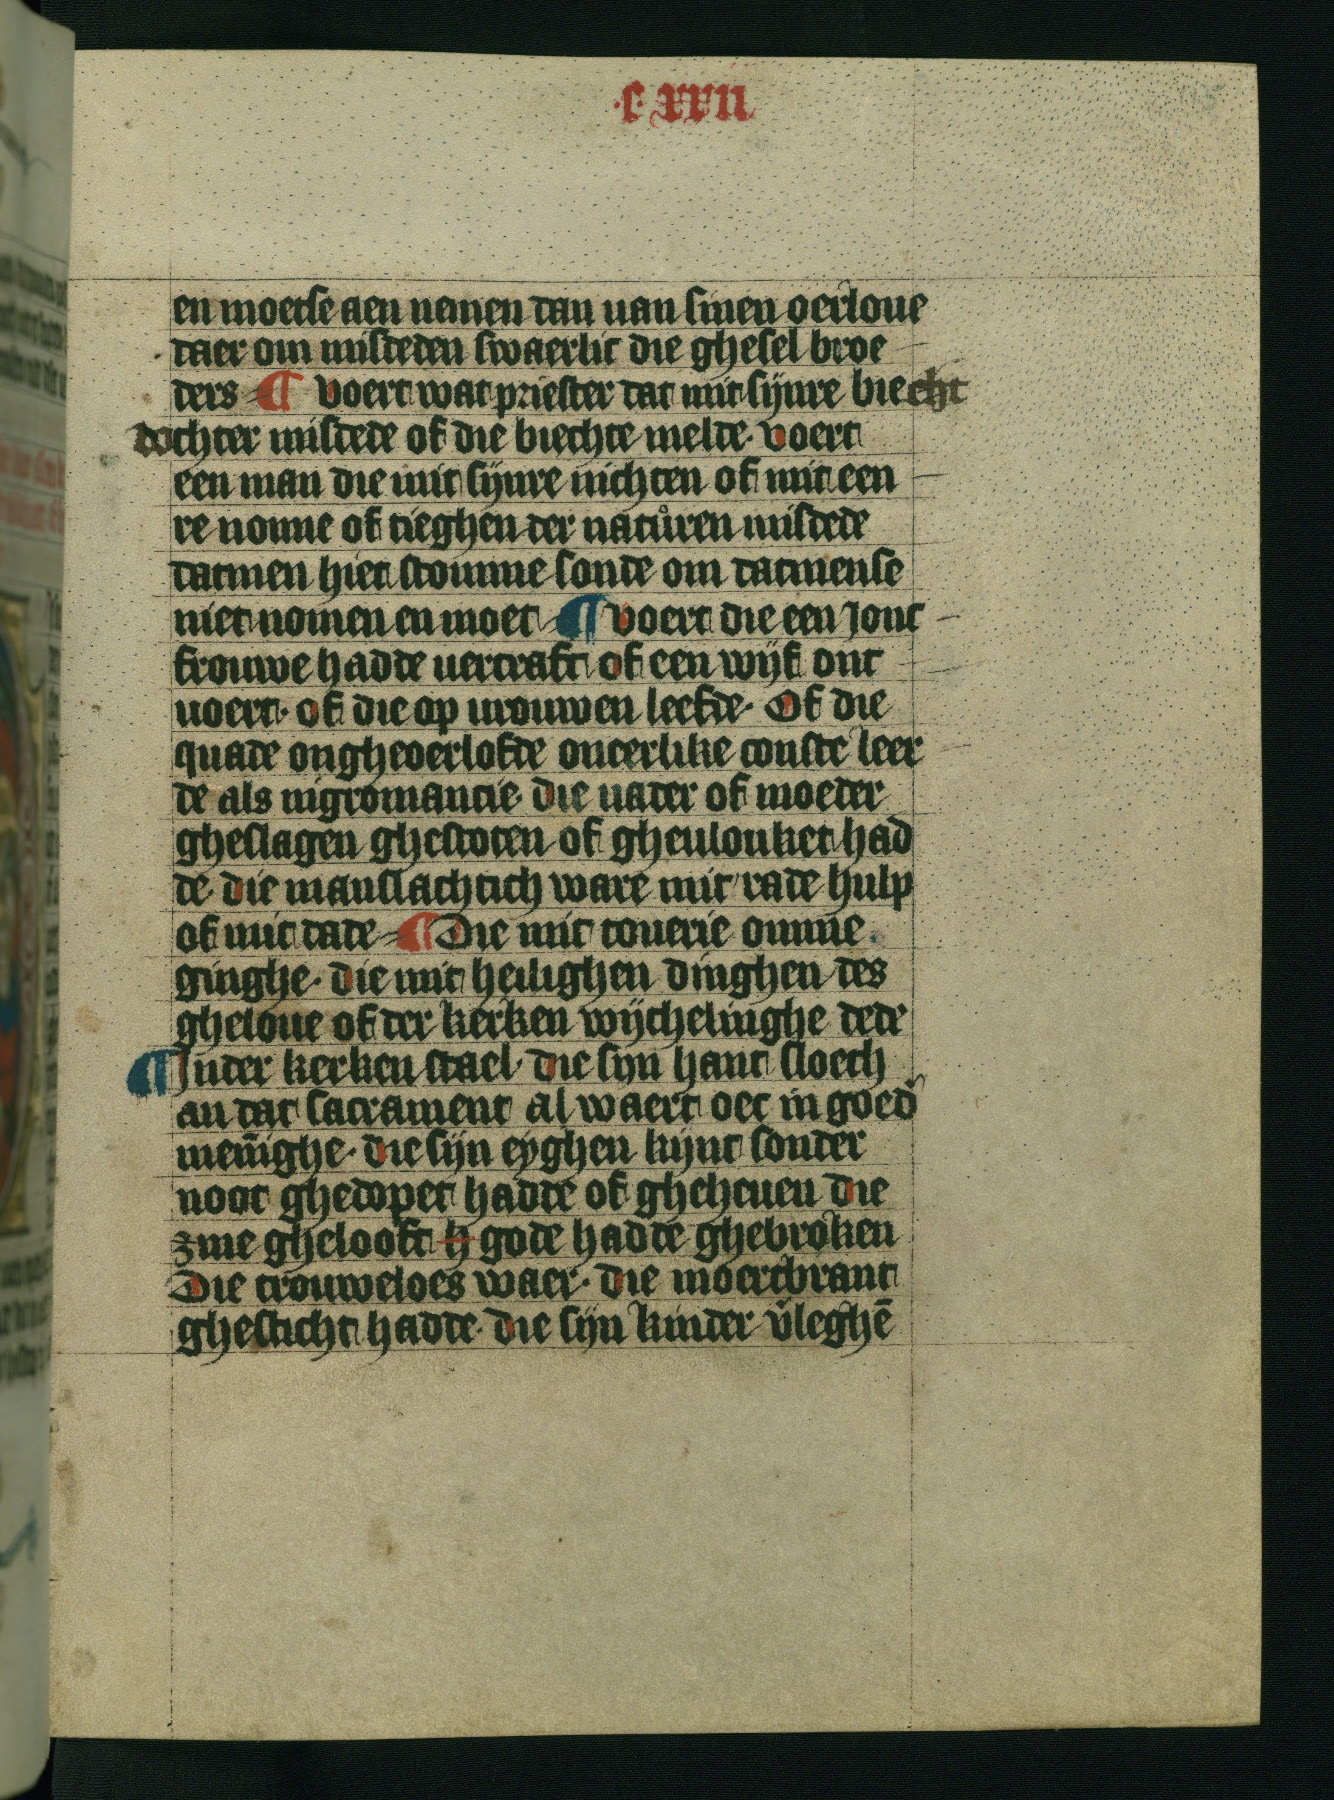 ·C· XXII
en moetse aen nemen dan uan sinen oerloue
daer om misdeden swaerlic die ghesel broe
ders ¶ voert wat priester dat mit sijnre biecht
dochter misdede of die biechte melde· voert
een man die mit sijnre nichten of mit een
re nonne of tieghen der natůren misdede
datmen hiet stomme sonde om datmense
niet nomen en moet ¶ voert die een Jonc
frouwe hadde uercraft of een wijf ont
uoert· of die op urouwen leefde· Of die
quade ongheoerlofde onterlike conste leer
de als nigromancie· die uader of moeder
gheslagen ghestoten of gheulouket had
de· die manslachtich ware mit rade hulp
of mit dade ¶ Die mit touerie omme
ginghe· die mit heilighen dinghen des
gheloue of der kerken wijchelinghe dede
¶ Jnder kerken stael· die sijn hant sloech
an dat sacrament al waert oec in goed͛
men̄ighe· die sijn eyghen kijnt sonder
noot ghedopet hadde of gheheuen die
zine ghelooft h gode hadde ghebroken
Die trouweloes waer· die moertbrant
ghesticht hadde· die sijn kinder v͛leghē